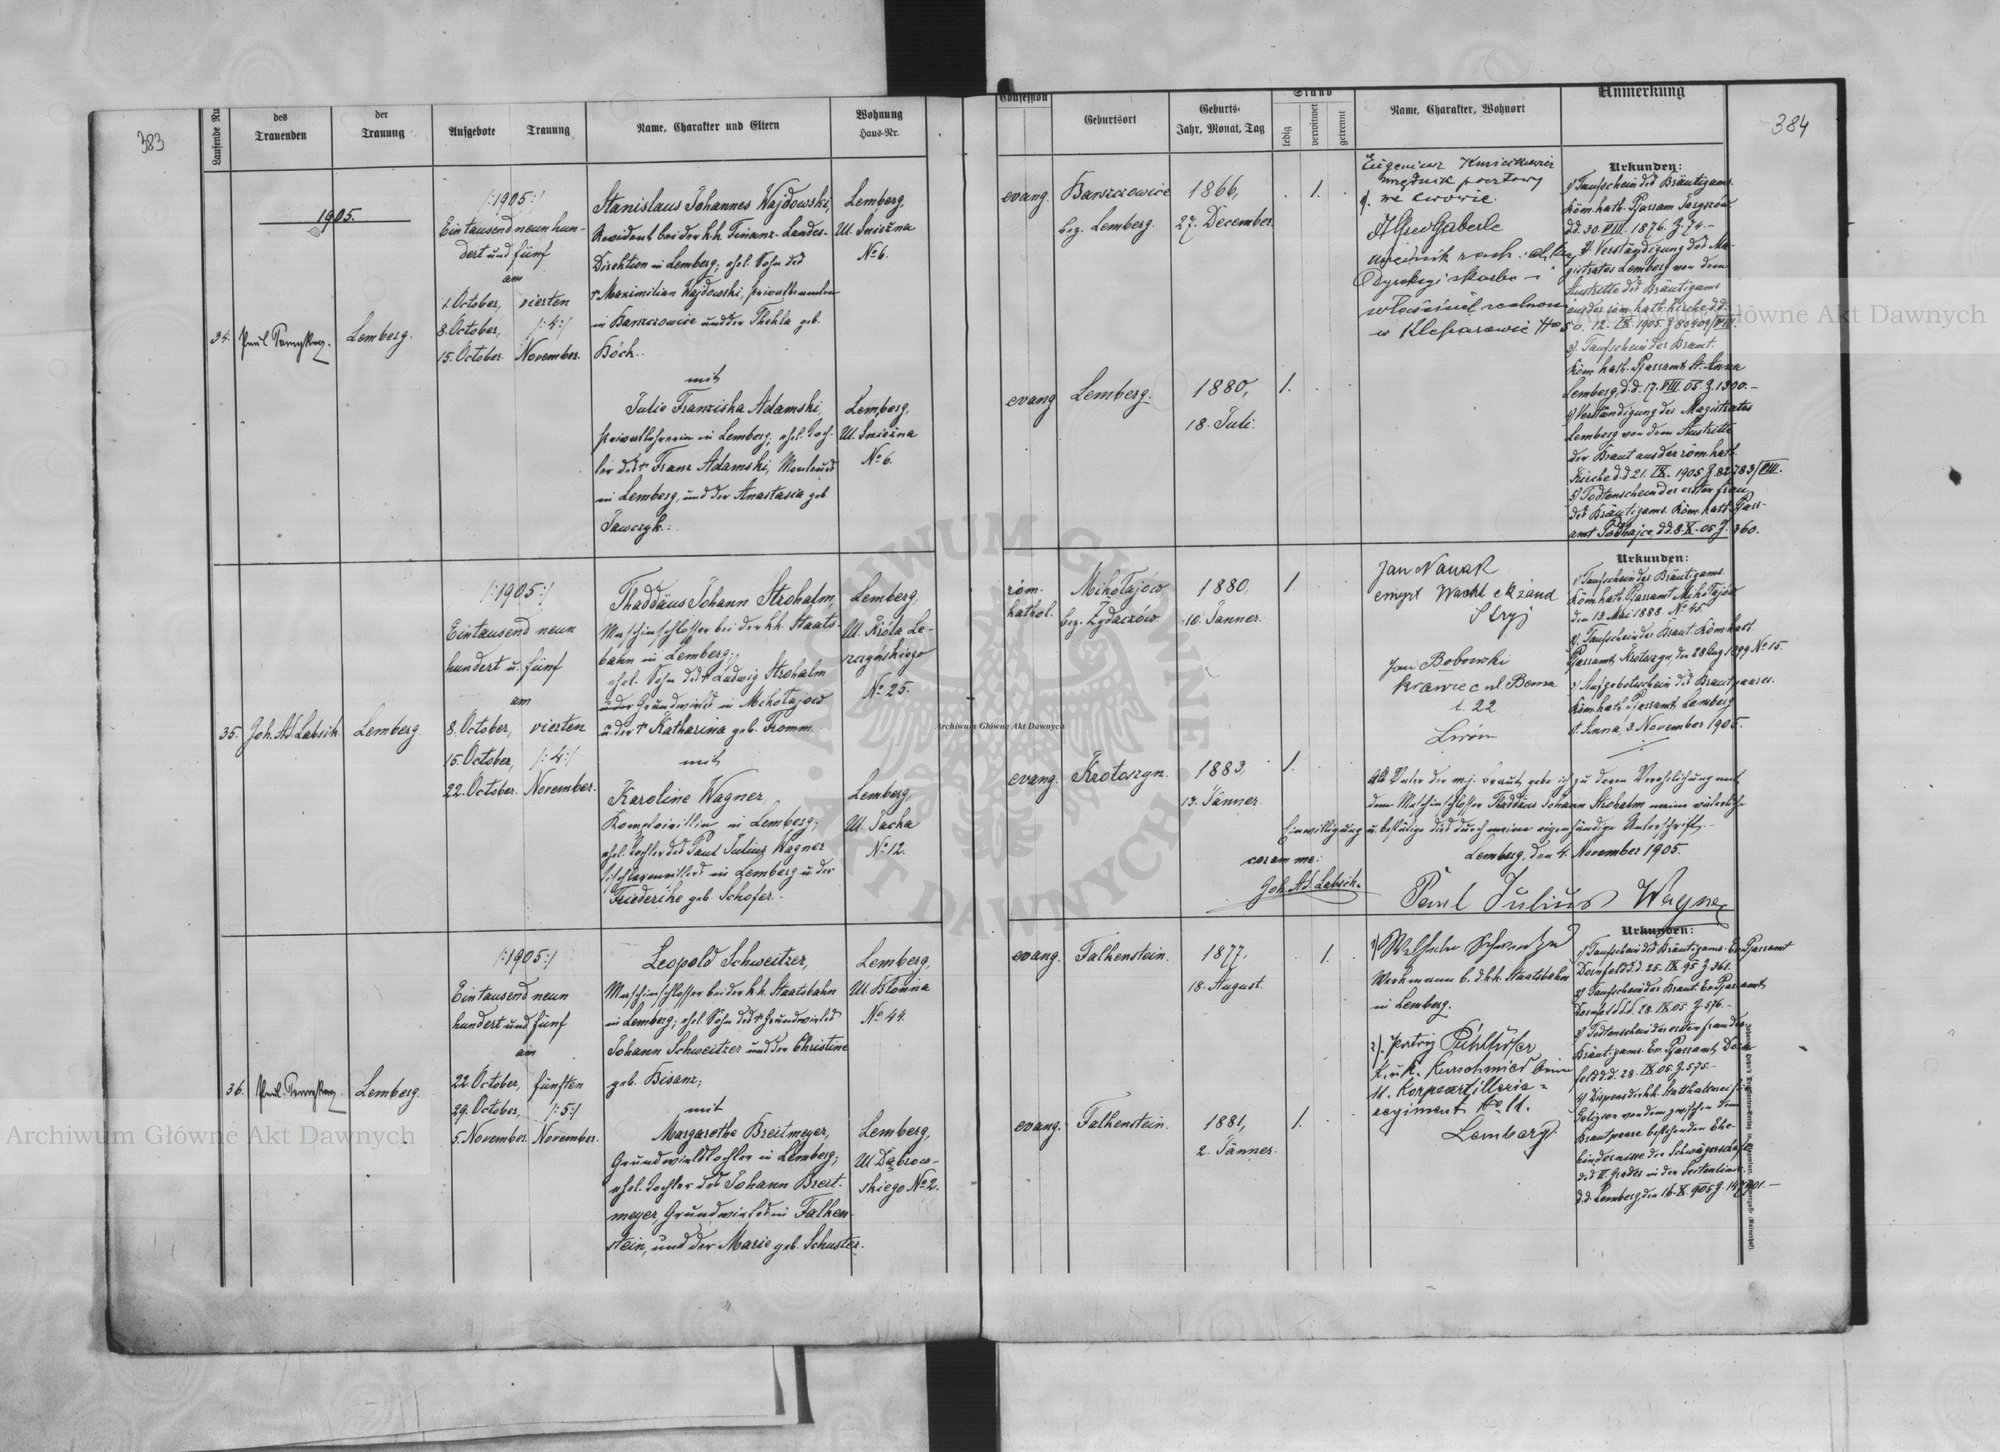 383
Laufende Nu
des
Trauenden
der
Trauung
Aufgebote
Trauung
Name, Charakter und Eltern
Wohnung
Haus-Nr.
1905.
34.
Lemberg.
/:1905:/
Ein tausend neun hun-
dert und fünf
am
1. October, vierten
8. October, /:4:/
15. October. November.
Stanislaus Johannes Wajdowski,
Revident bei der k.k. Finanz-Landes-
Direktion in Lemberg; ehel. Sohn des
† Maximilian Wajdowski, Privatbeamten
in Barszczowice und der Thekla geb.
Höch.
mit
Julie Franziska Adamski,
Privatlehrerin in Lemberg; ehel. Toch-
ter des † Franz Adamski,
in Lemberg, und der Anastasia geb.
Lemberg,
Ul. Śnieżna
No 6.
Lemberg,
Ul. Śnieżna
No 6.
35.
Joh. Ad. Labsik
Lemberg.
/:1905:/
Ein tausend neun
hundert u. fünf
am
8. October, vierten
15. October, /:4:/
22. October. November.
Thaddäus Johann Strohalm,
Maschinschlosser bei der k.k. Staats-
bahn in Lemberg;
ehel. Sohn des † Ludwig Strohalm
Grundwirt in Mikołajow
u. der † Katharina geb. Fromm.
mit
Karoline Wagner,
in Lemberg;
ehel. Tochter des Paul Julius Wagner
in Lemberg u. der
Friederike geb. Schofer.
Lemberg,
Ul. Króla Le-
szczyńskiego
No 25.
Lemberg,
Ul. Sacha
No 12.
36.
Lemberg.
/:1905:/
Ein tausend neun
hundert und fünf
am
22. October, fünften
29. October, /:5:/
5. November. November.
Leopold Schweitzer,
Maschinschlosser bei der k.k. Staatsbahn
in Lemberg; ehel. Sohn des † Grundwirtes
Johann Schweitzer und der Christine
geb. Bisanz;
mit
Margarethe Breitmeyer,
Grundwirtstochter in Lemberg;
ehel. Tochter des Johann Breit-
meyer, Grundwirtes in Falken-
stein, und der Marie geb. Schuster.
Lemberg,
Ul. Błonna
No 44.
Lemberg,
Ul. Dąbrow-
skiego No 2.
384
Confession
Geburtsort
Geburts-
Jahr, Monat, Tag
Stand
ledig
verwitwet
getrennt
Name, Charakter, Wohnort
Anmerkung
evang. Barszczowice 1866, 1.
bez. Lemberg. 27. December.
evang. Lemberg. 1880, 1.
18. Juli.
Eugeniusz
urzędnik pocztowy
we Lwowie.
Alfred Gaberle
w Kleparowie
Urkunden:
1) Taufschein des Bräutigams.
Röm. kath. Pfarramt
d.d. 30. VIII. 1876. Z. 74.-
2) Verständigung des Ma-
gistrates Lemberg von dem
Austritte des Bräutigams
aus der röm. kath. Kirche d.d.
12. IX. 1905. Z. 80409/VIII.
3) Taufschein der Braut.
Röm. kath. Pfarramt St. Anna
Lemberg, d.d. 17. VIII. 05. Z. 1300.-
4) Verständigung des Magistrates
Lemberg von dem Austritte
der Braut aus der röm. kath.
Kirche d.d. 21. IX. 1905. Z. 82783/VIII.
5) Todtenschein der ersten Frau
des Bräutigams. Röm. kath. Pfarr-
amt Podhajce, d.d. 8. X. 05. Z. 360.
röm. Mikołajów 1880, 1
kathol. bez. Żydaczów. 10. Jänner.
evang. Krotoszyn. 1883, 1.
13. Jänner.
Jan Nowak
Stryj
Jan Bobowski
krawiec ul. Bema
l. 22
Lwów
Urkunden:
1) Taufschein des Bräutigams.
Röm. kath. Pfarramt Mikołajów
den 13. Mai 1888. No 45.
2) Taufschein der Braut. Röm. kath.
Pfarramt Krotoszyn, den 28 Aug 1899 No 15.
3) Aufgebotsschein des Brautpaares.
Röm. kath. Pfarramt Lemberg
St. Anna, 3. November 1905.
Als Vater der m.j. Braut gebe ich zu deren Verehelichung mit
dem Maschinschlosser Thaddäus Johann Strohalm meine väterliche
Einwilligung u. bestätige dies durch meine eigenhändige Unterschrift.
Lemberg, den 4. November 1905.
coram me:
Joh. Ad. Labsik.
Paul Julius Wagner
evang. Falkenstein. 1877, 1.
18. August.
evang. Falkenstein. 1881, 1.
2. Jänner.
1)
Werkmann b. d. k.k. Staatsbahn
in Lemberg.
2).
K. u. K. Kurschmied beim
11. Korpsartillerie-
regiment No 11.
Lemberg.
Urkunden:
1) Taufschein des Bräutigams. Ev. Pfarramt
Dornfeld d.d. 25. IX. 95 Z. 361.
2) Taufschein der Braut. Ev. Pfarramt
Dornfeld d.d. 28. IX. 05. Z. 576.-
3) Todtenschein der ersten Frau des
Bräutigams. Ev. Pfarramt Dorn-
feld d.d. 28. IX. 05. Z. 575.-
4) Dispens der k.k. Statthalterei
Galizien von dem zwischen dem
Brautpaare bestehenden Ehe-
hindernisse der Schwägerschaft
des II. Grades in der Seitenlinie.
d.d. Lemberg, den 16. X. 905. Z. 147901.-
Archiwum Główne Akt Dawnych
Archiwum Główne Akt Dawnych
Archiwum Główne Akt Dawnych
ARCHIWUM GŁÓWNE AKT DAWNYCH